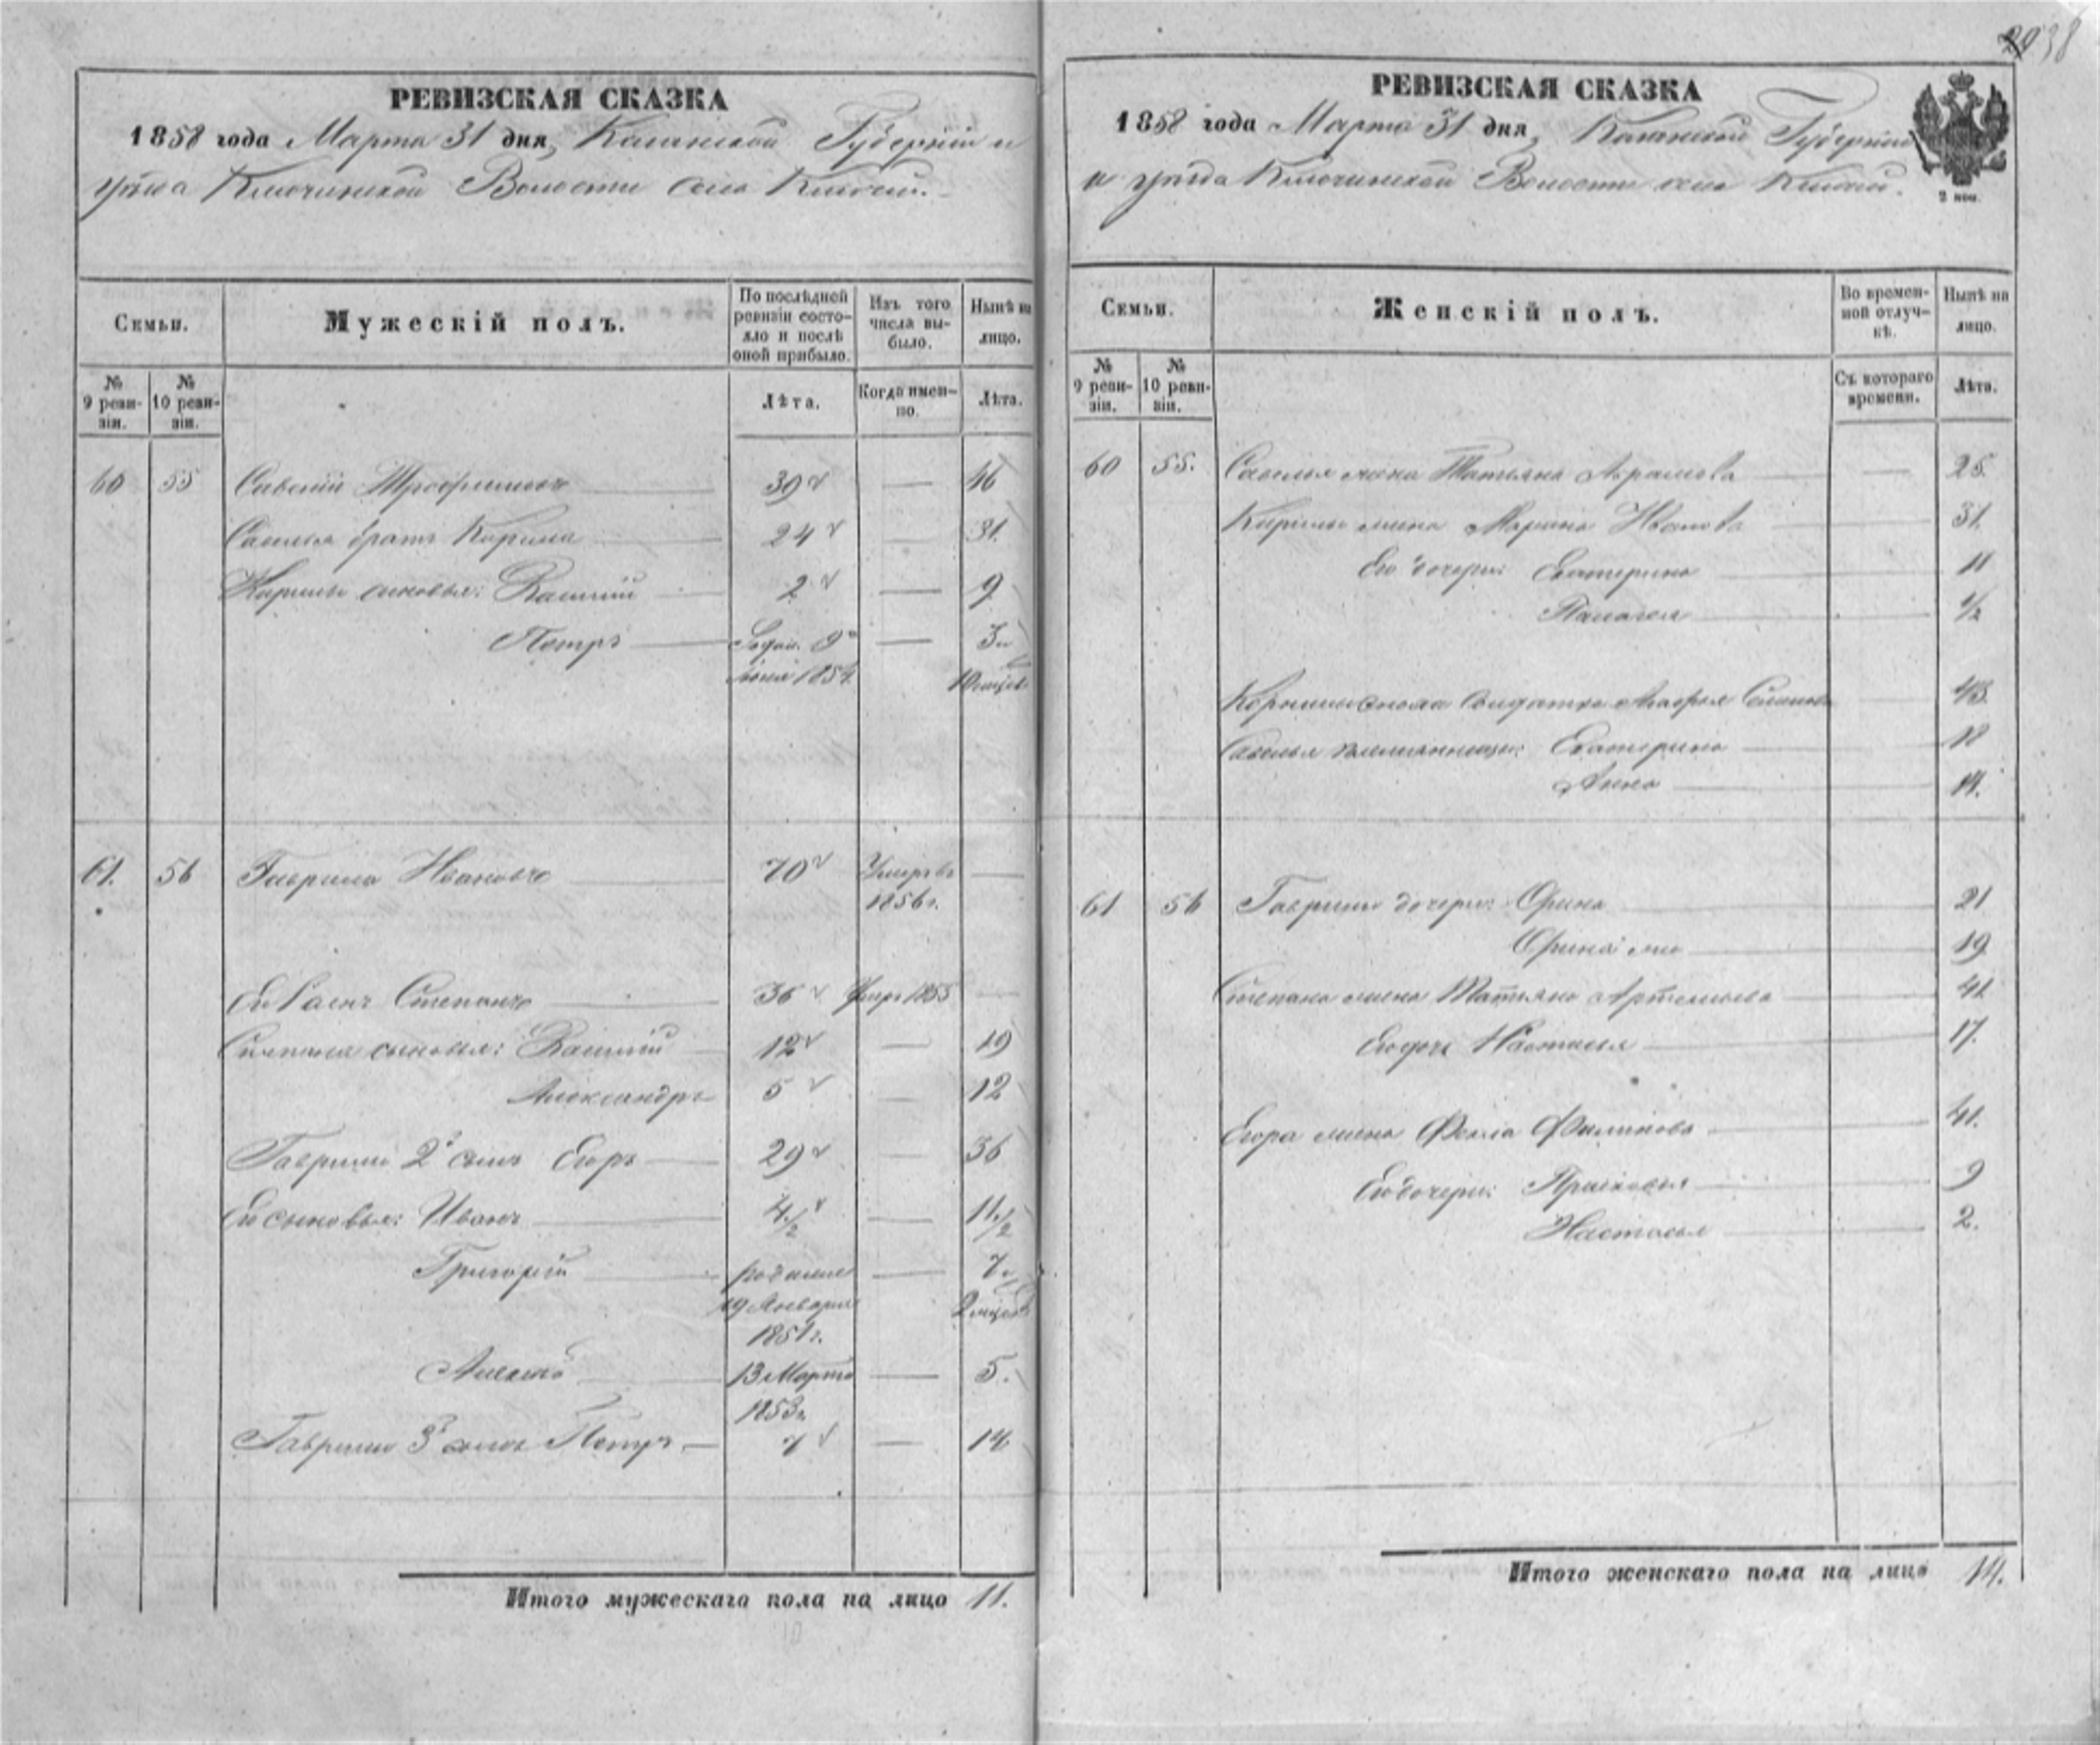 2938
РЕВИЗСКАЯ СКАЗКА
1858 года Марта 31 дня, Казанской Губернии и
уѣзда Ключинской Волости села Ключи.
Семьи.
Мужескій полъ.
По послѣдней ревизіи состояло и послѣ оной прибыло.
Изъ того числа выбыло.
Нынѣ на лицо.
№ 9 ревизіи.
№ 10 ревизіи.
Лѣта.
Когда именно.
Лѣта.
60 55 Савелій Трофимовъ 39 — 46
Савелья братъ Кирила 24 — 31.
Кирилы сыновья: Василій 2 — 9
Петръ 9 — 3
1854. 10 мѣсяц.
61. 56 Гаврила Ивановъ 70 Умеръ въ —
1856 г.
Его сынъ Степанъ 36 Умеръ 1855 —
Степана сыновья: Василій 12 — 19
Александръ 5 — 12
Гаврилы 2й сынъ Егоръ 29 — 36
Его сыновья: Иванъ 4 1/2 — 11 1/2
Григорій рожденъ — 7
19 Января 2 мѣсяц.
1851 г.
Алексѣй 13 Марта — 5.
1853 г.
Гаврилы 3й сынъ Петръ 7 — 14
Итого мужескаго пола на лицо 11.
10
РЕВИЗСКАЯ СКАЗКА
1858 года Марта 31 дня, Казанской Губерніи
и уѣзда Ключинской Волости села Ключи.
2 коп.
Семьи.
Женскій полъ.
Во временной отлучкѣ.
Нынѣ на лицо.
№ 9 ревизіи.
№ 10 ревизіи.
Съ котораго времени.
Лѣта.
60 55. Савелья жена Татьяна Абрамова — 25.
Кирилы жена Марина Иванова 31.
Его дочери: Екатерина 11
Палагея 1/2
солдатка 43.
Савелья племянницы: Екатерина 18
Анна 14.
61 56 Гаврилы дочери: Орина 21
Орина 19
Степана жена Татьяна Артемьева 41
Его дочь Настасья 17.
Егора жена Филипова 41.
Его дочери: Прасковья 9
Настасья 2.
Итого женскаго пола на лицо 14.